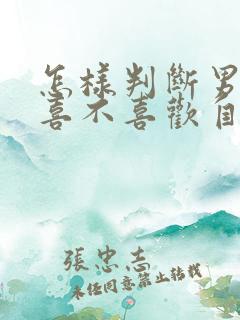 怎樣判斷男
喜不喜歡自
張忠志
未经同意禁止转载